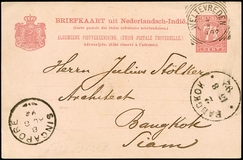 BRIEFKAART uit Nederlandsch-Indië.
ALGEMEENE POSTVEREENIGING (UNION POSTALE UNIVERSELLE)
WELTEVREDEN
Herrn Julius Stölker
Architect
Bangkok
Siam
BANGKOK
SINGAPORE